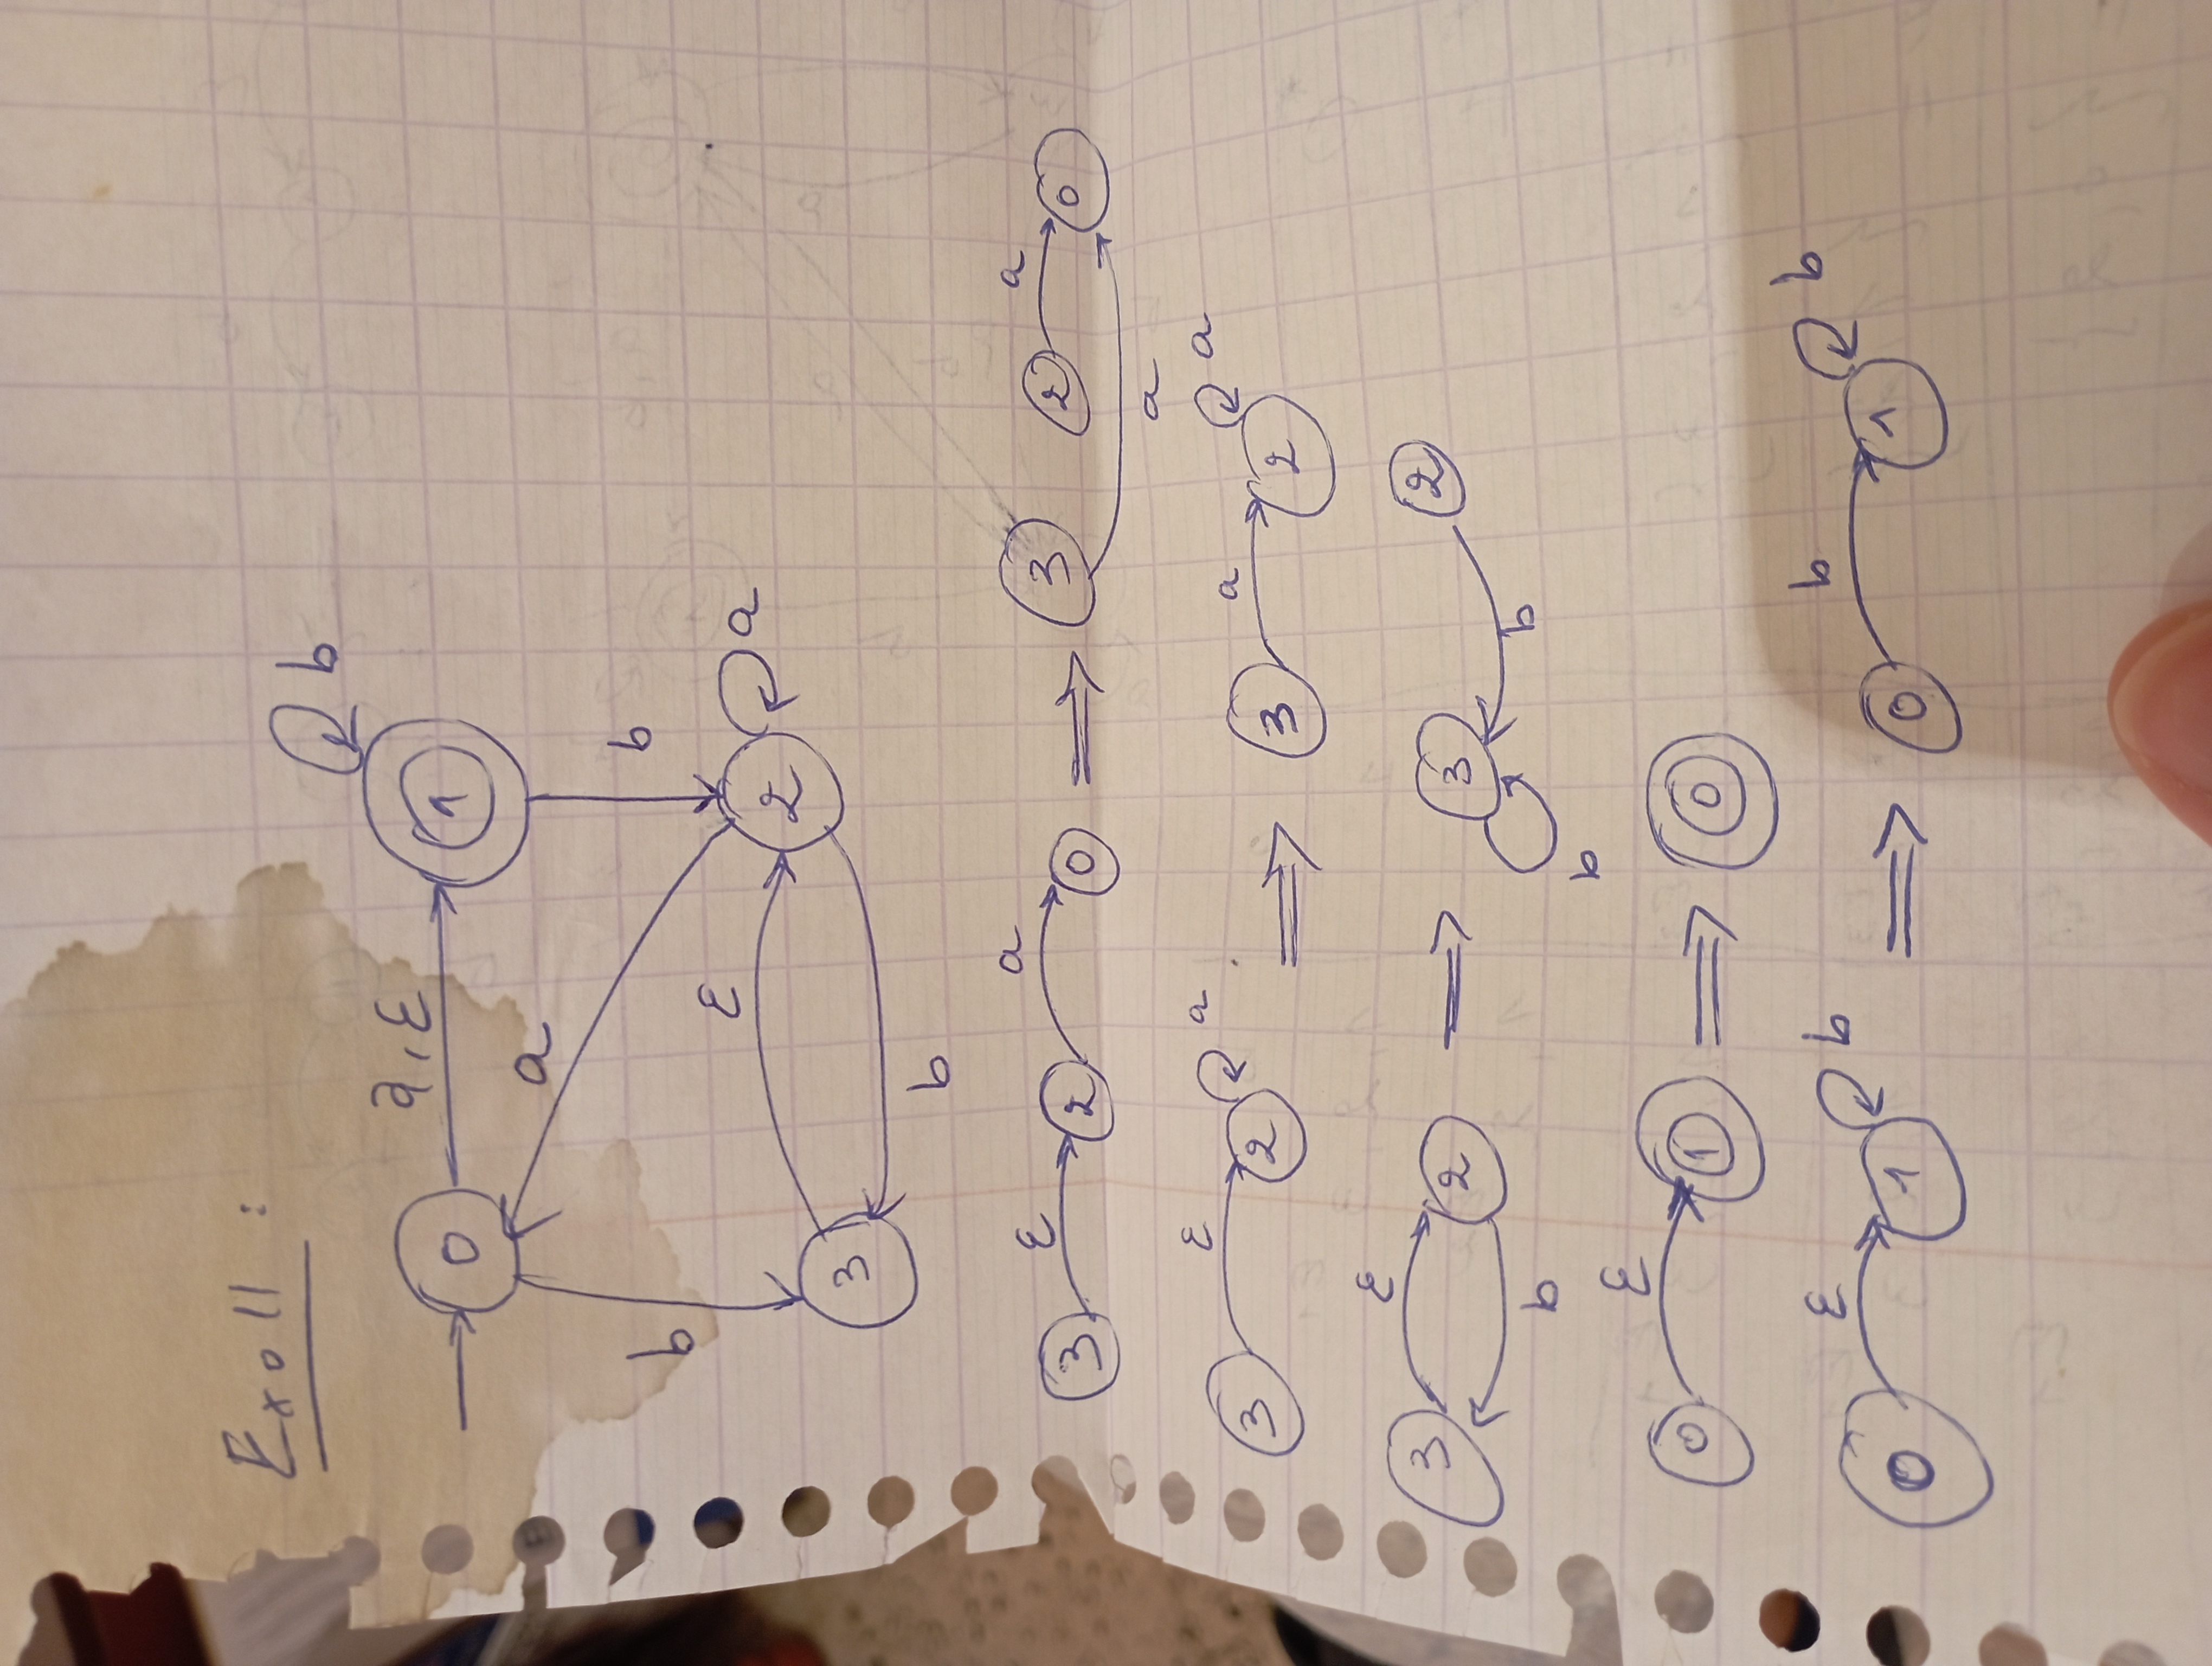 Exo 11 :
b
0 a, ε 1
a
b b
ε
2 a
3
b
3 ε 2 a 0 ⟹ 3 2 a 0
a
3 ε 2 a ⟹ 3 a 2 a
3 ε 2 ⟹ 3 2
b b
b
0 ε 1 ⟹ 0
0 ε 1 b ⟹ 0 b 1 b